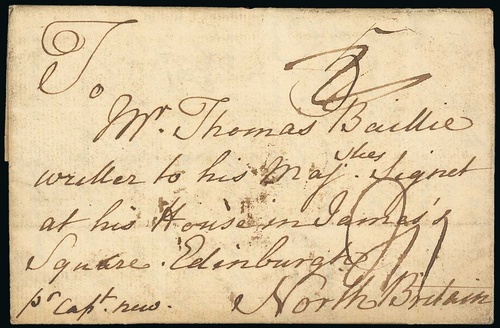 To
Mr. Thomas Baillie
writter to his Majesties Signet
at his House in James's
Square. Edinburgh
North Britain
pr Capt. new.